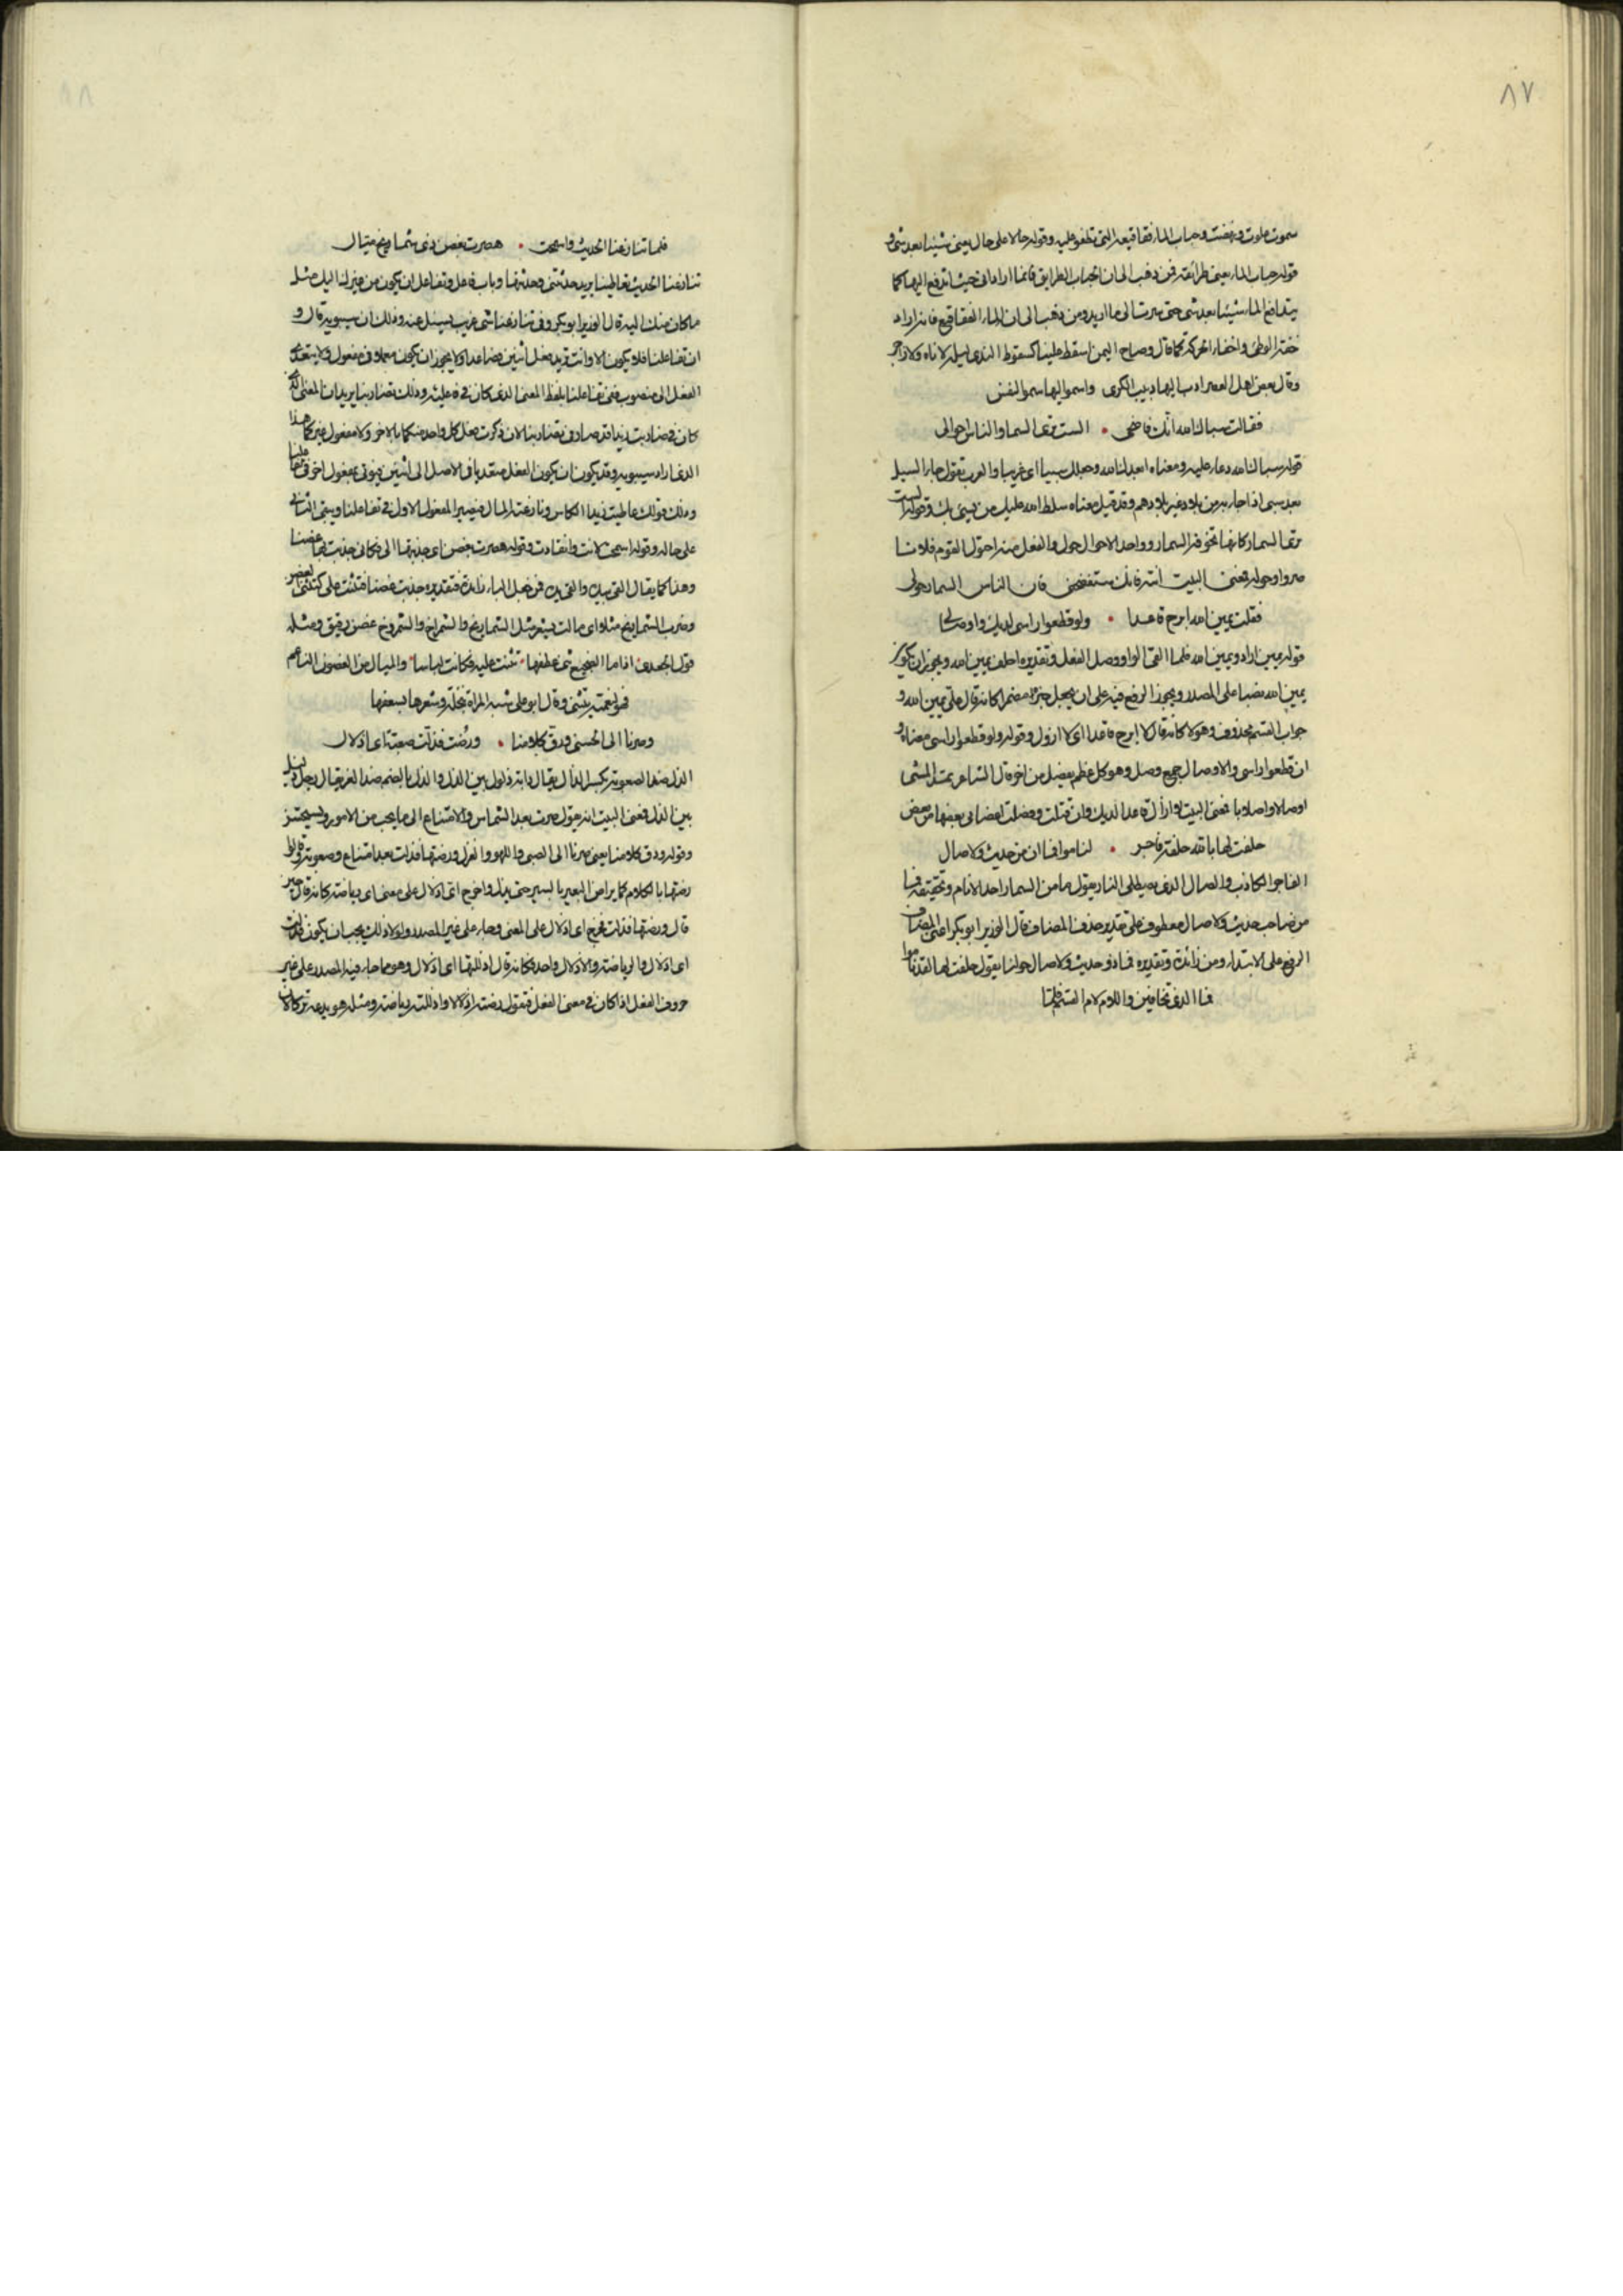 ٨٧
سموت علوت ونهضت وحباب الماء فقاقيعه التى تطفو عليه وقوله حالا على حال يعنى شيئا بعد شى و
قوله حباب الماء يعنى طرائقه فمن ذهب الى ان الحباب الطرايق فانما اراد انى جيت اتدفع اليها كما
يتدافع الماء شيئا بعد شى حتى صرت الى ما اريد ومن ذهب الى ان الماء الفقاقيع فانه اراد
خفة الوطئ واخفاء الحركة كما قال وضاح اليمن اسقط علينا كسقوط الندى ليلة لا ناه ولا زاجر
وقال بعض اهل العصر ادب اليها دبيب الكرى واسمو اليها سمو النفس
فقالت سباك الله انك فاضحى • الست ترى السمار والناس احوالى
قوله سباك الله دعاء عليه ومعناه ابعدك الله وجعلك سبيا اى غريبا والعرب تقول جاء السيل
بعود سبى اذا جاء به من بلاد غير بلادهم وقد قيل معناه سلط الله عليك من يسبى بك وقوله الست
ترى السمار كانها تخوفه السمار وواحد الاحوال حول والفعل منه احول القوم فلانا
صروا حوله فمعنى البيت استر فانك ستفضحنى فان الناس السمار حولى
فقلت يمين الله ابرح قاعدا • ولو قطعوا راسى لديك واوصالى
قوله يمين اراد ويمين الله فلما القى الواو وصل الفعل وتقديره احلف بيمين الله ويجوز ان يكون
يمين الله نصبا على المصدر ويجوز الرفع فيه على ان يجعل خبره مضمرا كانه قال على يمين الله و
جواب القسم محذوف وهو لا كانه قال لا ابرح قاعدا اى لا ازول وقوله ولو قطعوا راسى معناه و
ان قطعوا راسى والاوصال جمع وصل وهو كل عظم يفصل من اخر قال الشاعر يمثل المشى
اوصالا واصلابا فمعنى البيت لا ازال قاعدا لديك وان قتلت وفصلت اعضائى بعضها من بعض
حلفت لها بالله حلفة فاجر • لناموا فما ان من حديث ولا صال
الفاجر الكاذب والصال الذى يصطلى النار يقول ما من السمار احد الا نام وتحقيقه فما
من صاحب حديث ولا صال معطوف على تقدير حذف المضاف قال الوزير ابو بكر اعنى المضاف
الرفع على الابتداء ومن زائدة وتقديره فما ذو حديث ولا صال حولنا يقول حلفت لها لقد ناموا
فما الذى تخافين واللام لام القسم
٨٨
فلما تنازعنا الحديث واسمحت • هصرت بغصن ذى شماريخ ميال
تنازعنا الحديث تعاطينا يريد حدثتنى وحدثتها وباب فاعل وتفاعل ان يكون من غيرك اليك مثل
ما كان منك اليه قال الوزير ابو بكر وفى تنازعنا شى غريب يسئل عنه وذلك ان سيبويه قال و
ان تفاعلنا فلا يكون الا وانت تريد فعل اثنين فصاعدا ولا يجوز ان يكون معملا فى مفعول ولا يتعدى
الفعل الى منصوب ففى تفاعلنا يلفظ المعنى الذى كان فى فاعلته وذلك تضاربنا يريد ان المعنى الذى
كان فى ضاربت زيدا قد صار فى تضاربنا لان ذكرت فعل كل واحد منكما بالاخر ولا مفعول غيركما هذا
الذى اراد سيبويه وقد يكون ان يكون الفعل متعديا فى الاصل الى اثنين فيؤتى بمفعول اخر فى تفاعلنا
وذلك قولك عاطيت زيدا الكاس ونازعته المال فيصير المفعول الاول فى تفاعلنا ويبقى الثانى
على حاله وقوله اسمحت لانت وانقادت وقوله هصرت بغصن اى جذبتها الى فكانى جذبت بها غصنا
وهذا كما يقال القى بيده والقى يده فمن جعل الباء زائدة فتقديره جذبت غصنا فتثنت على كتثنى الغصن
وضرب الشماريخ مثلا اى مالت بشعر مثل الشماريخ والشمراخ والشمروخ غصن دقيق ومثله
قول الجعدى اذا ما الضجيع ثنى عطفها • تثنت عليه فكانت لباسا • والميال من الغصون الناعم
فهو لنعمته يتثنى وقال ابو على شبه المراة بنخلة وشعرها بسعفها
وصرنا الى الحسنى ورق كلامنا • ورضت فذلت صعبة اى اذلال
الذل ضد الصعوبة بكسر الذال يقال دابة ذلول بين الذل والذل بالضم ضد العز يقال رجل ذليل
بين الذل فمعنى البيت انه يقول صرت بعد الشماس والامتناع الى ما يحب من الامور ويستحسن
وقوله ورق كلامنا يعنى صرنا الى الصبى واللهو والغزل ورضتها فذلت بعد امتناع وصعوبة وانما
رضتها بالكلام كما يراض البعير بالسير حتى يذل واخرج اى اذلال على معنى اى رياضة كانه قال حين
قال ورضتها فذلت فخرج اى اذلال على المعنى وجاء على غير المصدر ولولا ذلك يجب ان يكون فذلت
اى اذلال والرياضة والاذلال واحد فكانه قال اذللتها اى اذلال وهو مما جاء فيه المصدر على غير
حروف الفعل اذا كان فى معنى الفعل فتقول رضته اذلالا واذللته رياضة ومثله هو يدعه تركا لان